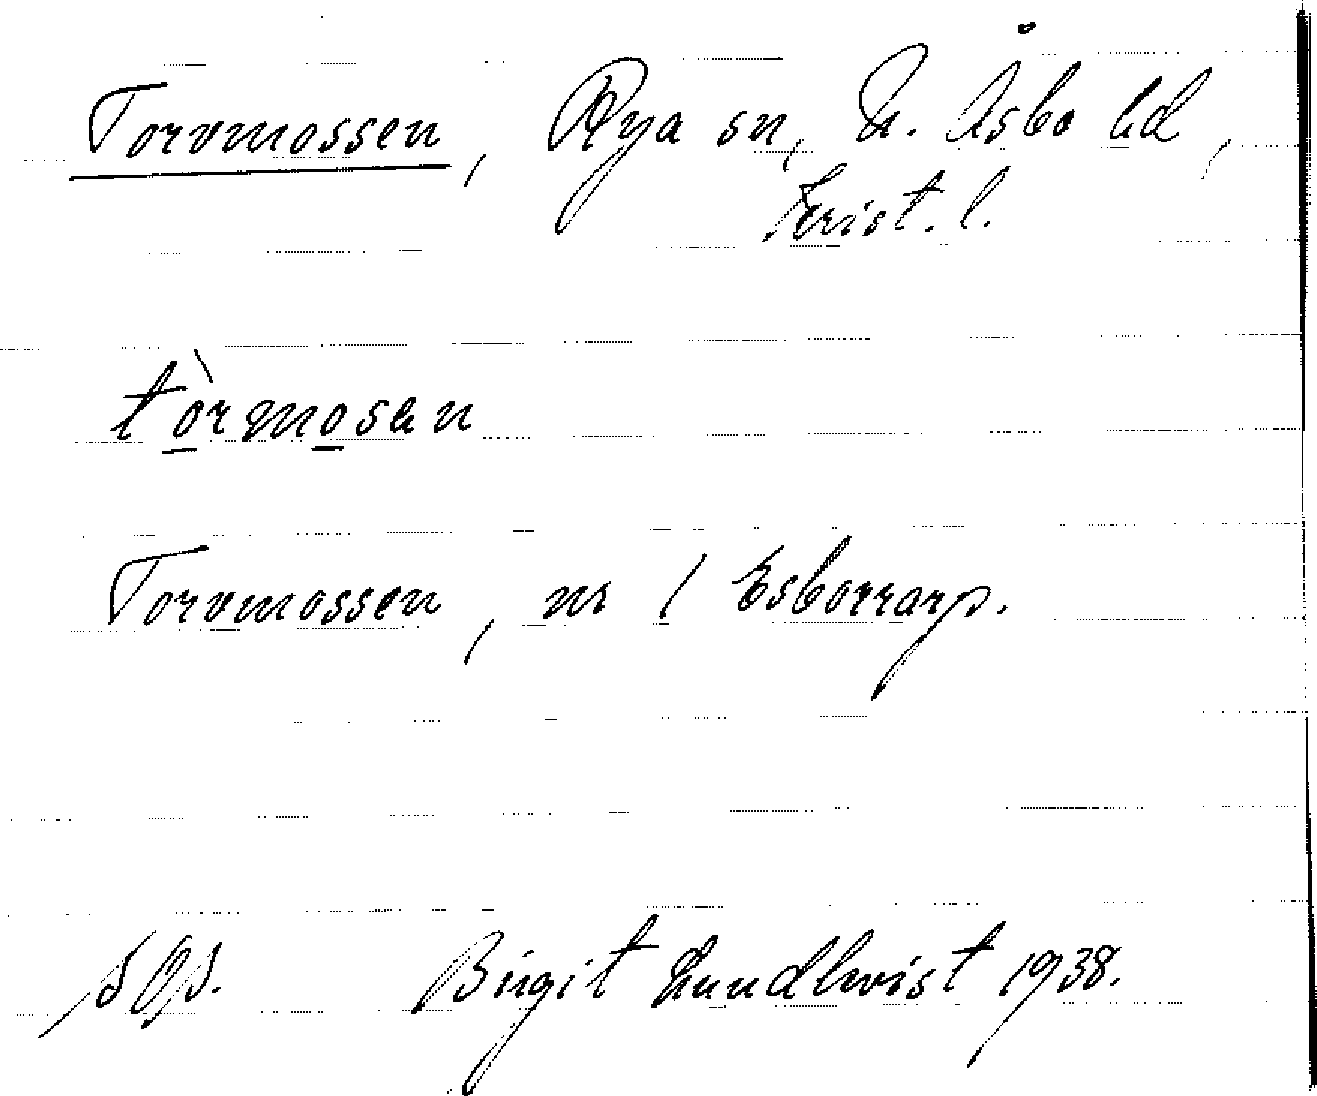 Torvmossen, Rya sn, N. Åsbo hd,
Krist. l.
tòrmosen
Torvmossen, nr 1 Esborrarp.
SOS. Birgit Lundkvist 1938.